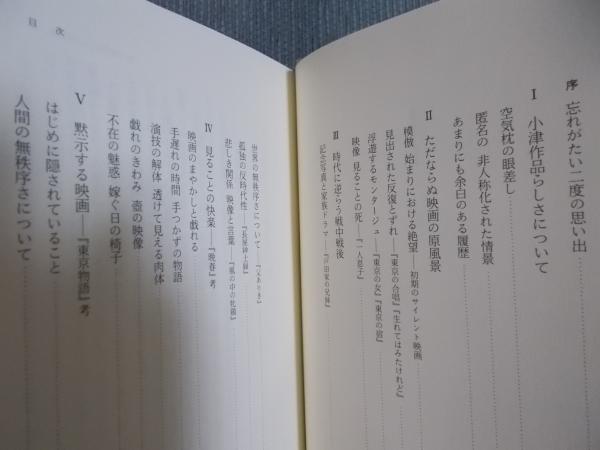 序 忘れがたい二度の思い出
I 小津作品らしさについて
空気枕の眼差し
匿名の 非人称化された情景
あまりにも余白のある履歴
II ただならぬ映画の原風景
模倣 始まりにおける絶望 初期のサイレント映画
見出された反復とずれ――『東京の合唱』『生れてはみたけれど』
浮遊するモンタージュ――『東京の女』『東京の宿』
映像 見ることの死――『一人息子』
III 時代に逆らう戦中戦後
記念写真と家族ドラマ――『戸田家の兄妹』
世界の無秩序さについて――『父ありき』
孤独の反時代性――『長屋紳士録』
悲しき関係 映像と言葉――『風の中の牝鶏』
IV 見ることの快楽――『晩春』考
映画のまやかしと戯れる
手遅れの時間 手つかずの物語
演技の解体 透けて見える肉体
戯れのきわみ 壺の映像
不在の魅惑 嫁ぐ日の椅子
V 黙示する映画――『東京物語』考
はじめに隠されていること
人間の無秩序さについて
目次